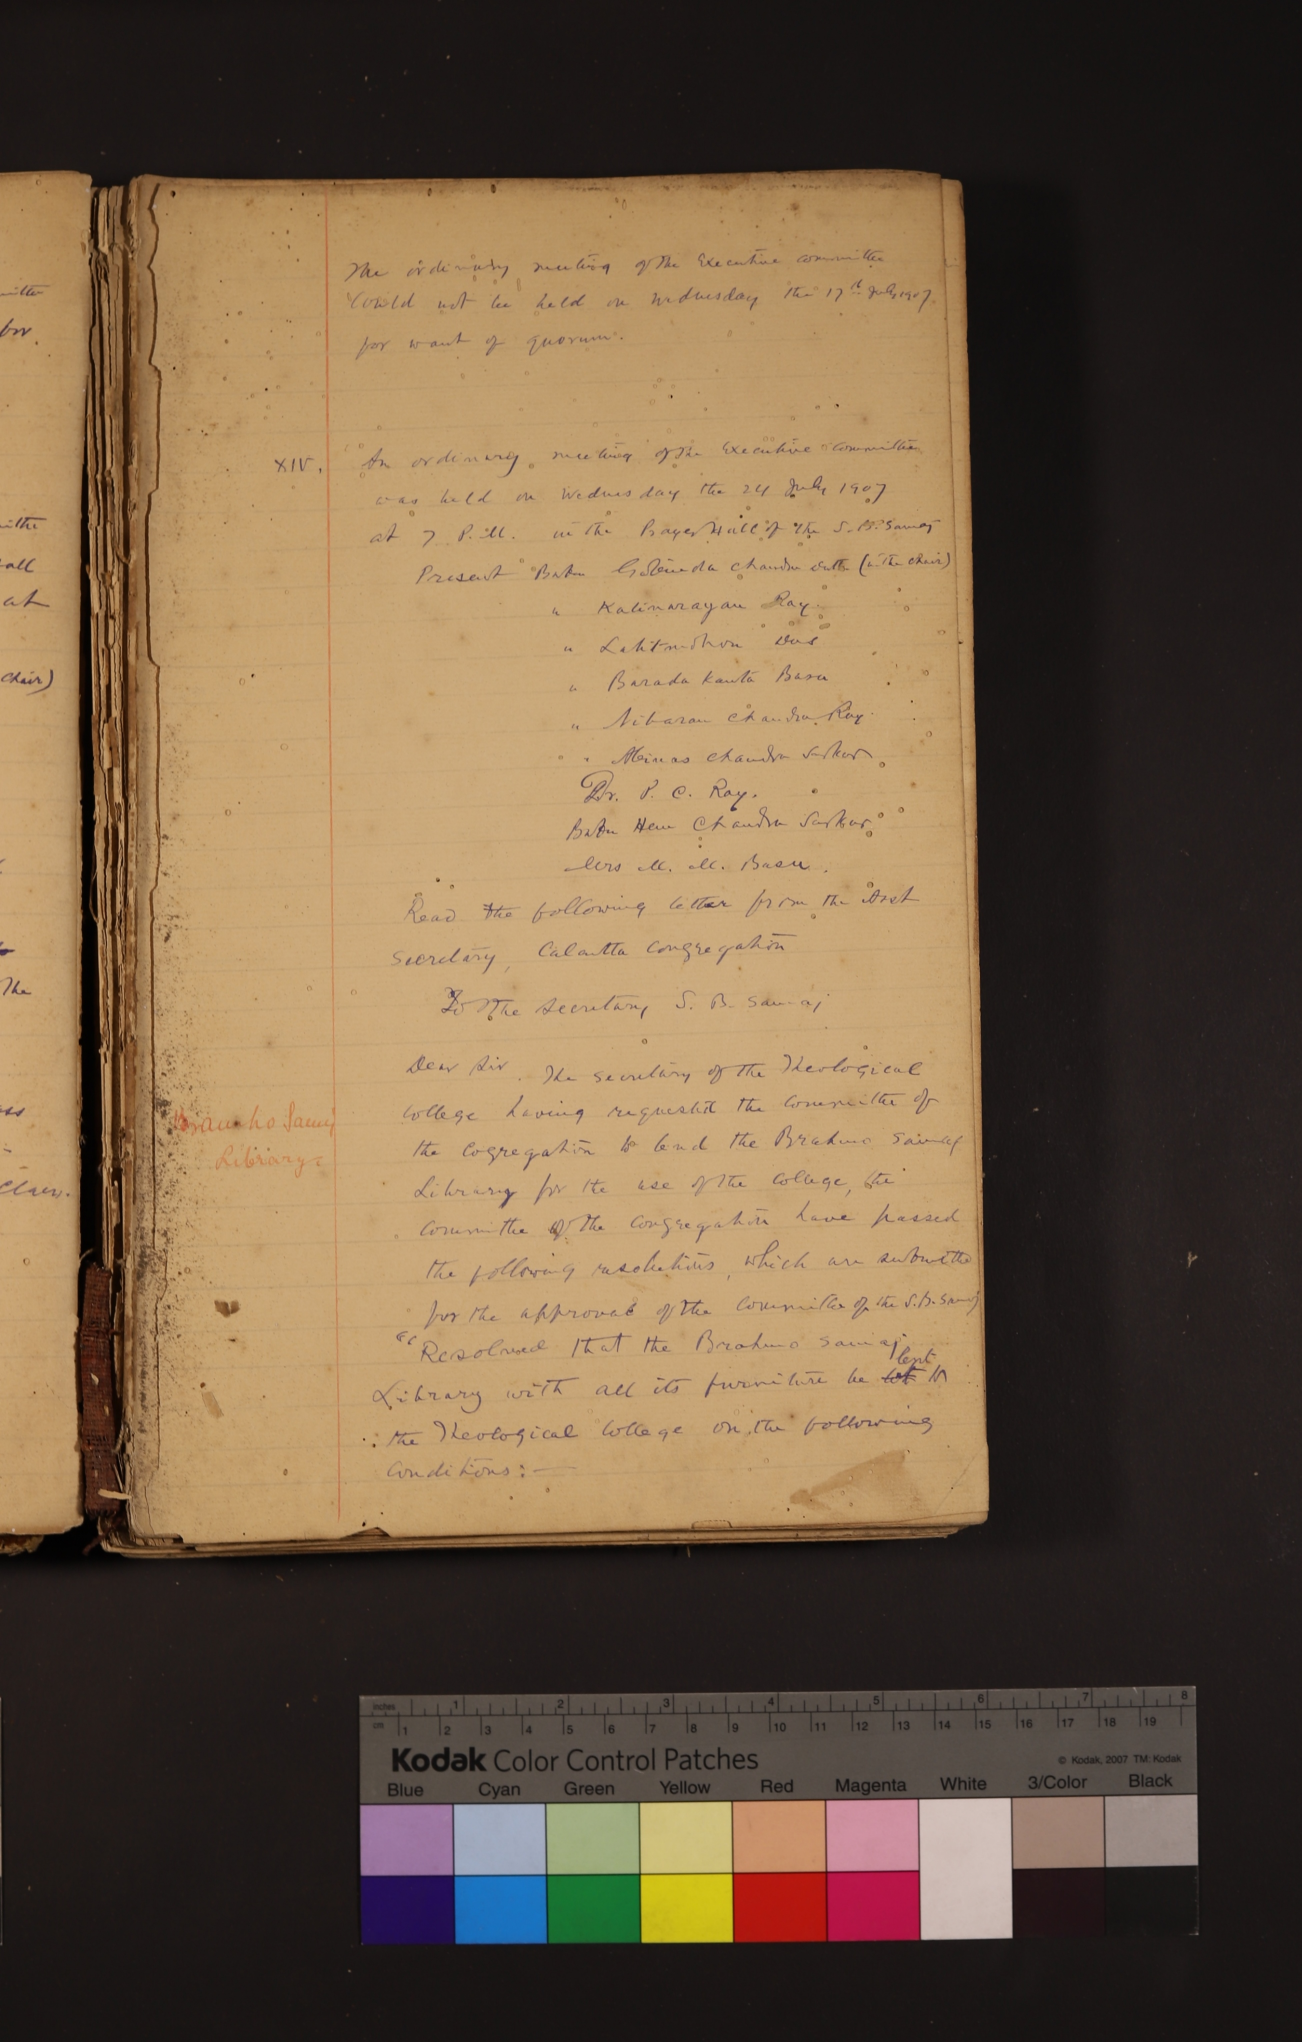 The ordinary meeting of the Executive committee
could not be held on Wednesday the 17th July 1907
for want of quorum.
XIV. An ordinary meeting of the Executive Committee
was held on Wednesday the 24 July 1907
at 7 P.M. in the Prayer Hall of the S. B. Samaj
Present Babu Gobinda Chandra Dutta (in the chair)
" Kalinarayan Ray
" Lalitmohon Das
" Barada Kanta Basu
" Nibaran Chandra Ray
" Abinas Chandra Sarkar
Dr. P. C. Ray.
Babu Hem Chandra Sarkar
Mrs M. M. Basu.
Read the following letter from the Asst
Secretary, Calcutta Congregation
To the Secretary S. B. Samaj
Dear Sir. The secretary of the Theological
College having requested the Committee of
the Cogregation to lend the Brahmo Samaj
Library for the use of the College, the
Committee of the Congregation have passed
the following resolutions, which are submitted
for the approval of the Committee of the S. B. Samaj
Brahmo Samaj
Library
"Resolved that the Brahmo Samaj
Library with all its furniture be lent to
the Theological College on the following
conditions:—
mitte
for.
mitte
all
at
chair)
the
Class.
inches 1 2 3 4 5 6 7 8
cm 1 2 3 4 5 6 7 8 9 10 11 12 13 14 15 16 17 18 19
Kodak Color Control Patches © Kodak, 2007 TM: Kodak
Blue Cyan Green Yellow Red Magenta White 3/Color Black